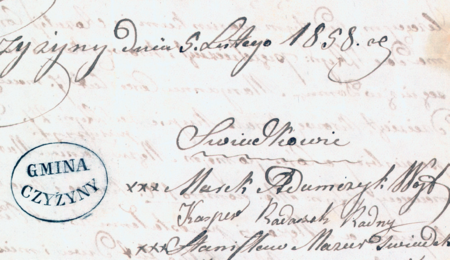 zyżyny dnia 5. Lutego 1858. r
Swiadkowie
GMINA
CZYŻYNY
xxx Marek Adamczyk Wójt
Kasper Radny
xxx Stanisław Mazur Swiadek